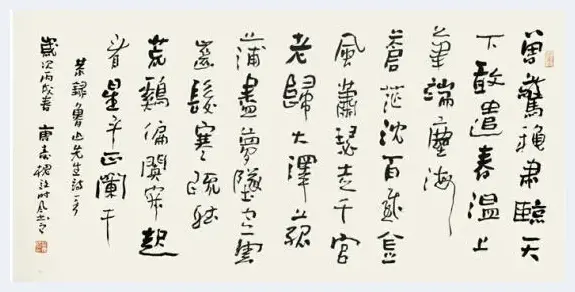 曾驚穐肅臨天
下敢遣春温上
筆端塵海
蒼茫沈百感金
風蕭瑟走千官
老歸大澤菰
蒲盡夢墜空雲
齒髮寒竦聽
荒鷄偏闃寂起
看星斗正闌干
恭録魯迅先生詩一首
歲次丙戌春